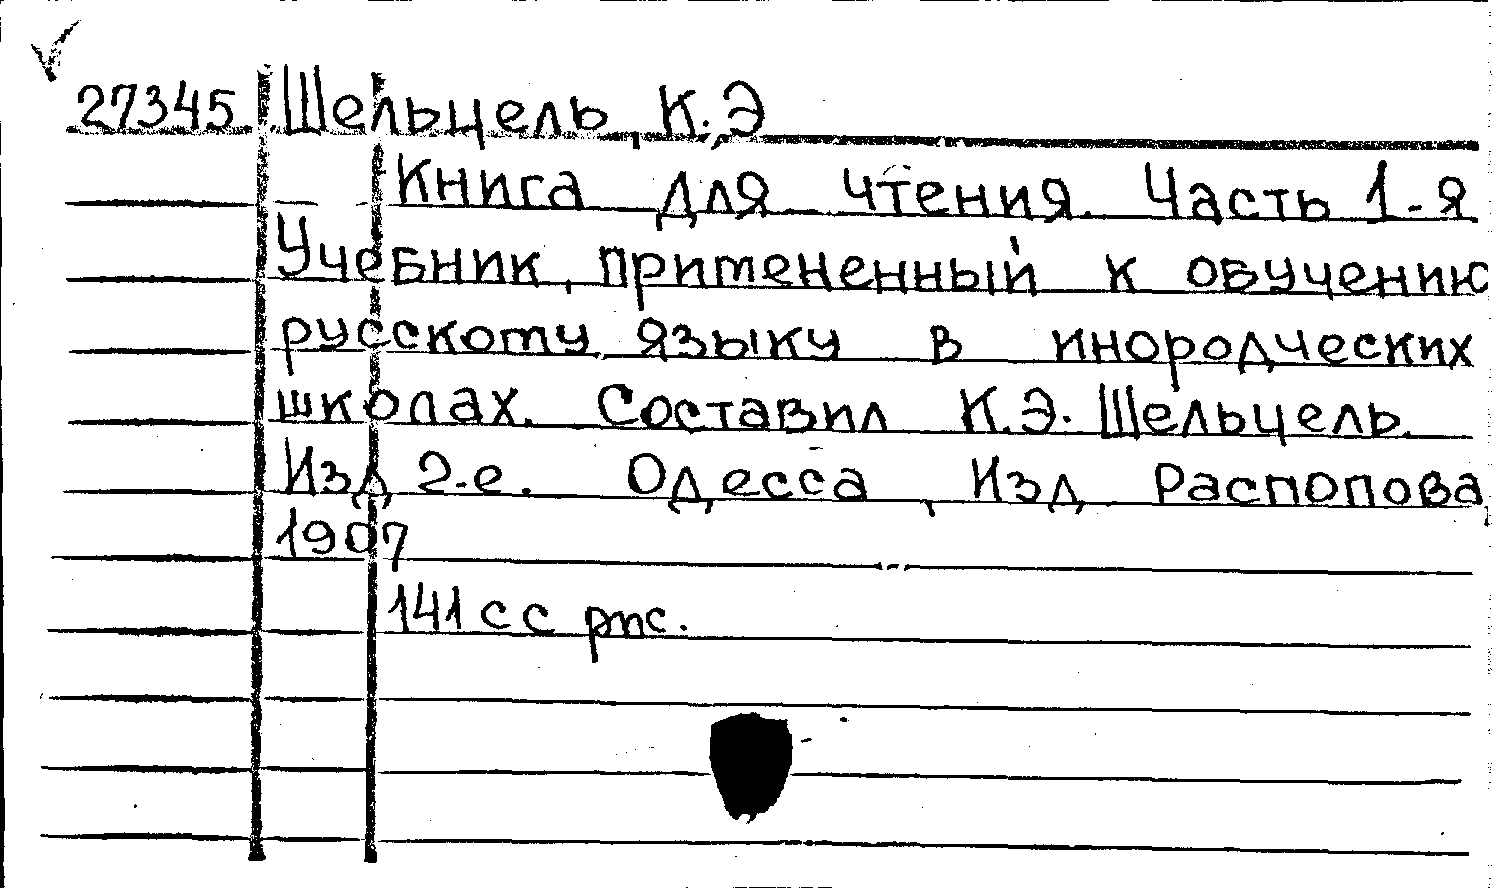 27345 Шельцель, К.Э
Книга для чтения. Часть 1-я
Учебник, примененный к обучению
русскому языку в инородческих
школах. Составил К.Э. Шельцель.
Изд 2-е. Одесса, Изд Распопова,
1907
141 с с рис.